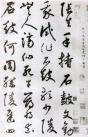 張生手持石鼓文勸
我試作石鼓歌少陵
無人謫仙死才薄將奈
石鼓何周綱陵遲四